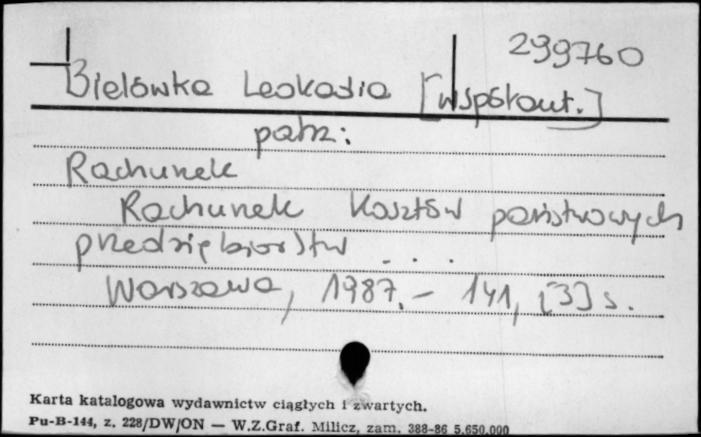 299760
Bielówka Leokadia [współaut.]
patrz:
Rachunek
Rachunek kosztów państwowych
przedsiębiorstw ...
Warszawa, 1987.- 141, [3] s.
Karta katalogowa wydawnictw ciągłych i zwartych.
Pu-B-144, z. 228/DW/ON — W.Z.Graf. Milicz, zam. 388-86 5.650.000